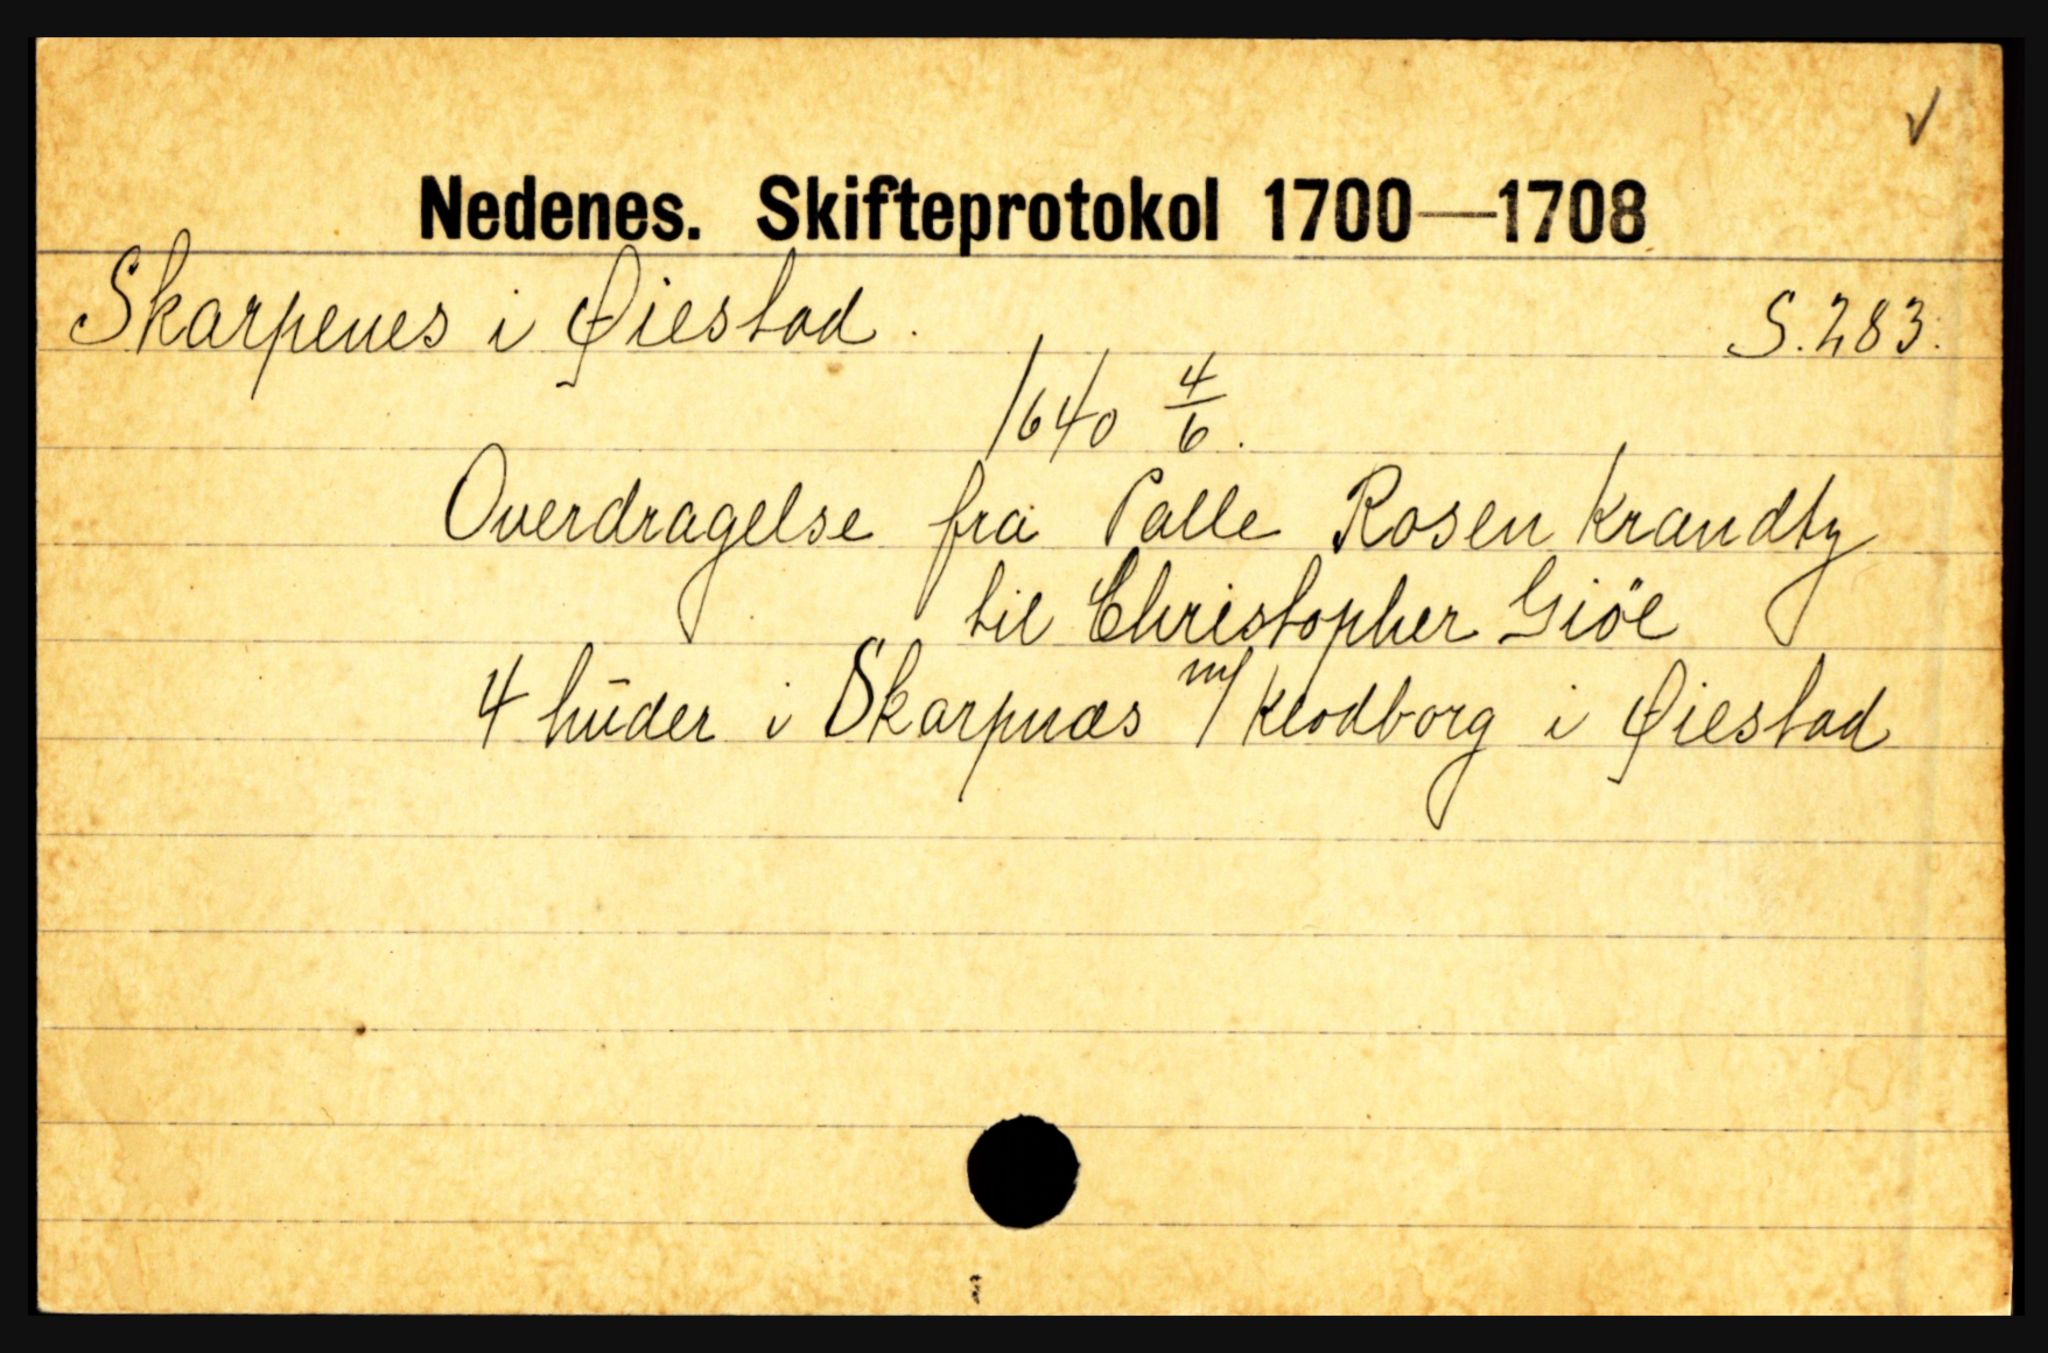 ✓
Nedenes. Skifteprotokol 1700—1708
Skarpenes i Øiestad. S. 283.
1640 4/6.
Overdragelse fra Palle Rosenkrandtz
til Christopher Giöe
4 huder i Skarpnæs m/ Klodborg i Øiestad